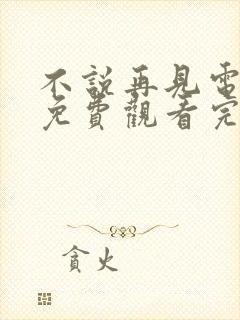 不說再見電
免費觀看完
貪火